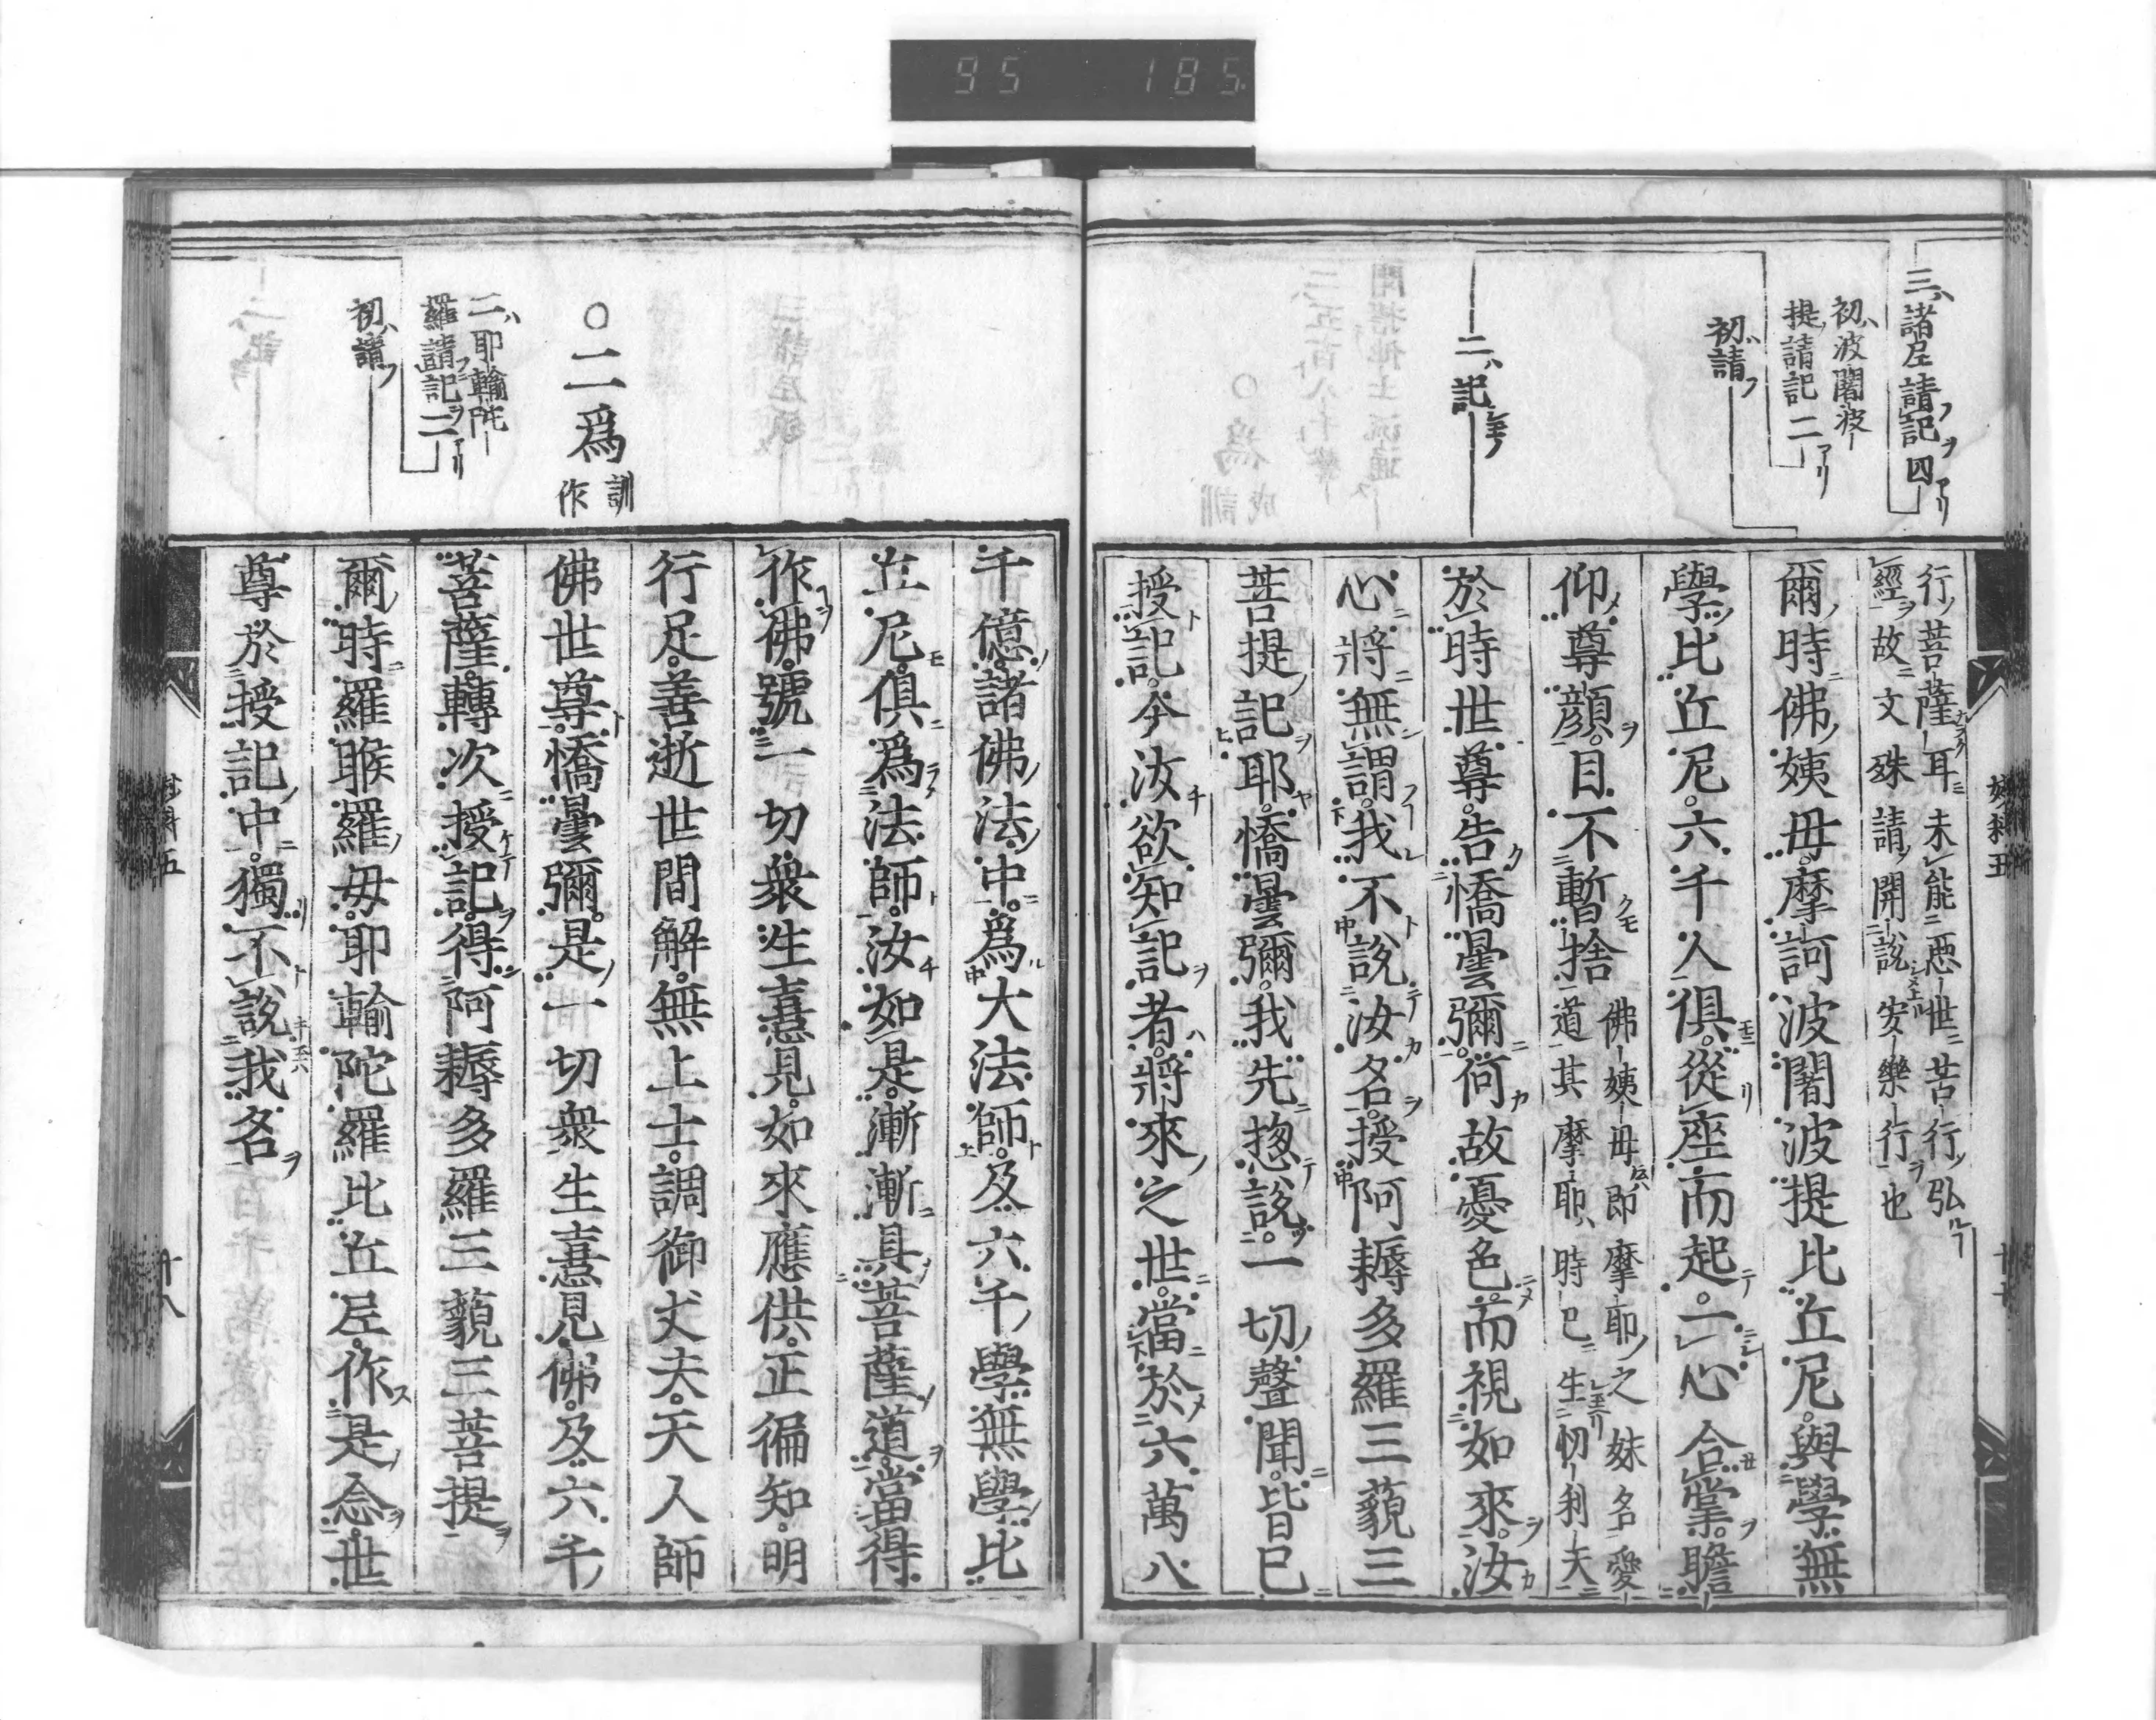 95 185
三諸尼請記四
初波闍波
提請記二
初請
二記
行菩薩耳未能惡世苦行弘
經故文殊請開說安樂行也
爾時佛姨母摩訶波闍波提比丘尼與學無
學比丘尼六千人俱從座而起一心合掌瞻
仰尊顏目不暫捨
佛姨母即摩耶之妹名愛
道其摩耶時已生忉利天
於時世尊告憍曇彌何故憂色而視如來汝
心將無謂我不說汝名授阿耨多羅三藐三
菩提記耶憍曇彌我先揔說一切聲聞皆已
授記今汝欲知記者將來之世當於六萬八
○二爲
訓
作
二耶輸陀
羅請記二
初請
千億諸佛法中爲大法師及六千學無學比
丘尼俱爲法師汝如是漸漸具菩薩道當得
作佛號一切衆生憙見如來應供正徧知明
行足善逝世間解無上士調御丈夫天人師
佛世尊憍曇彌是一切衆生憙見佛及六千
菩薩轉次授記得阿耨多羅三藐三菩提
爾時羅睺羅母耶輸陀羅比丘尼作是念世
尊於授記中獨不說我名